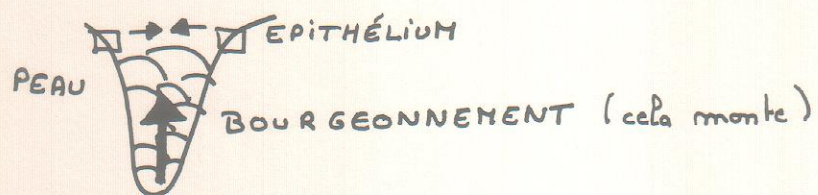 EPITHÉLIUM
PEAU
BOURGEONNEMENT (cela monte)